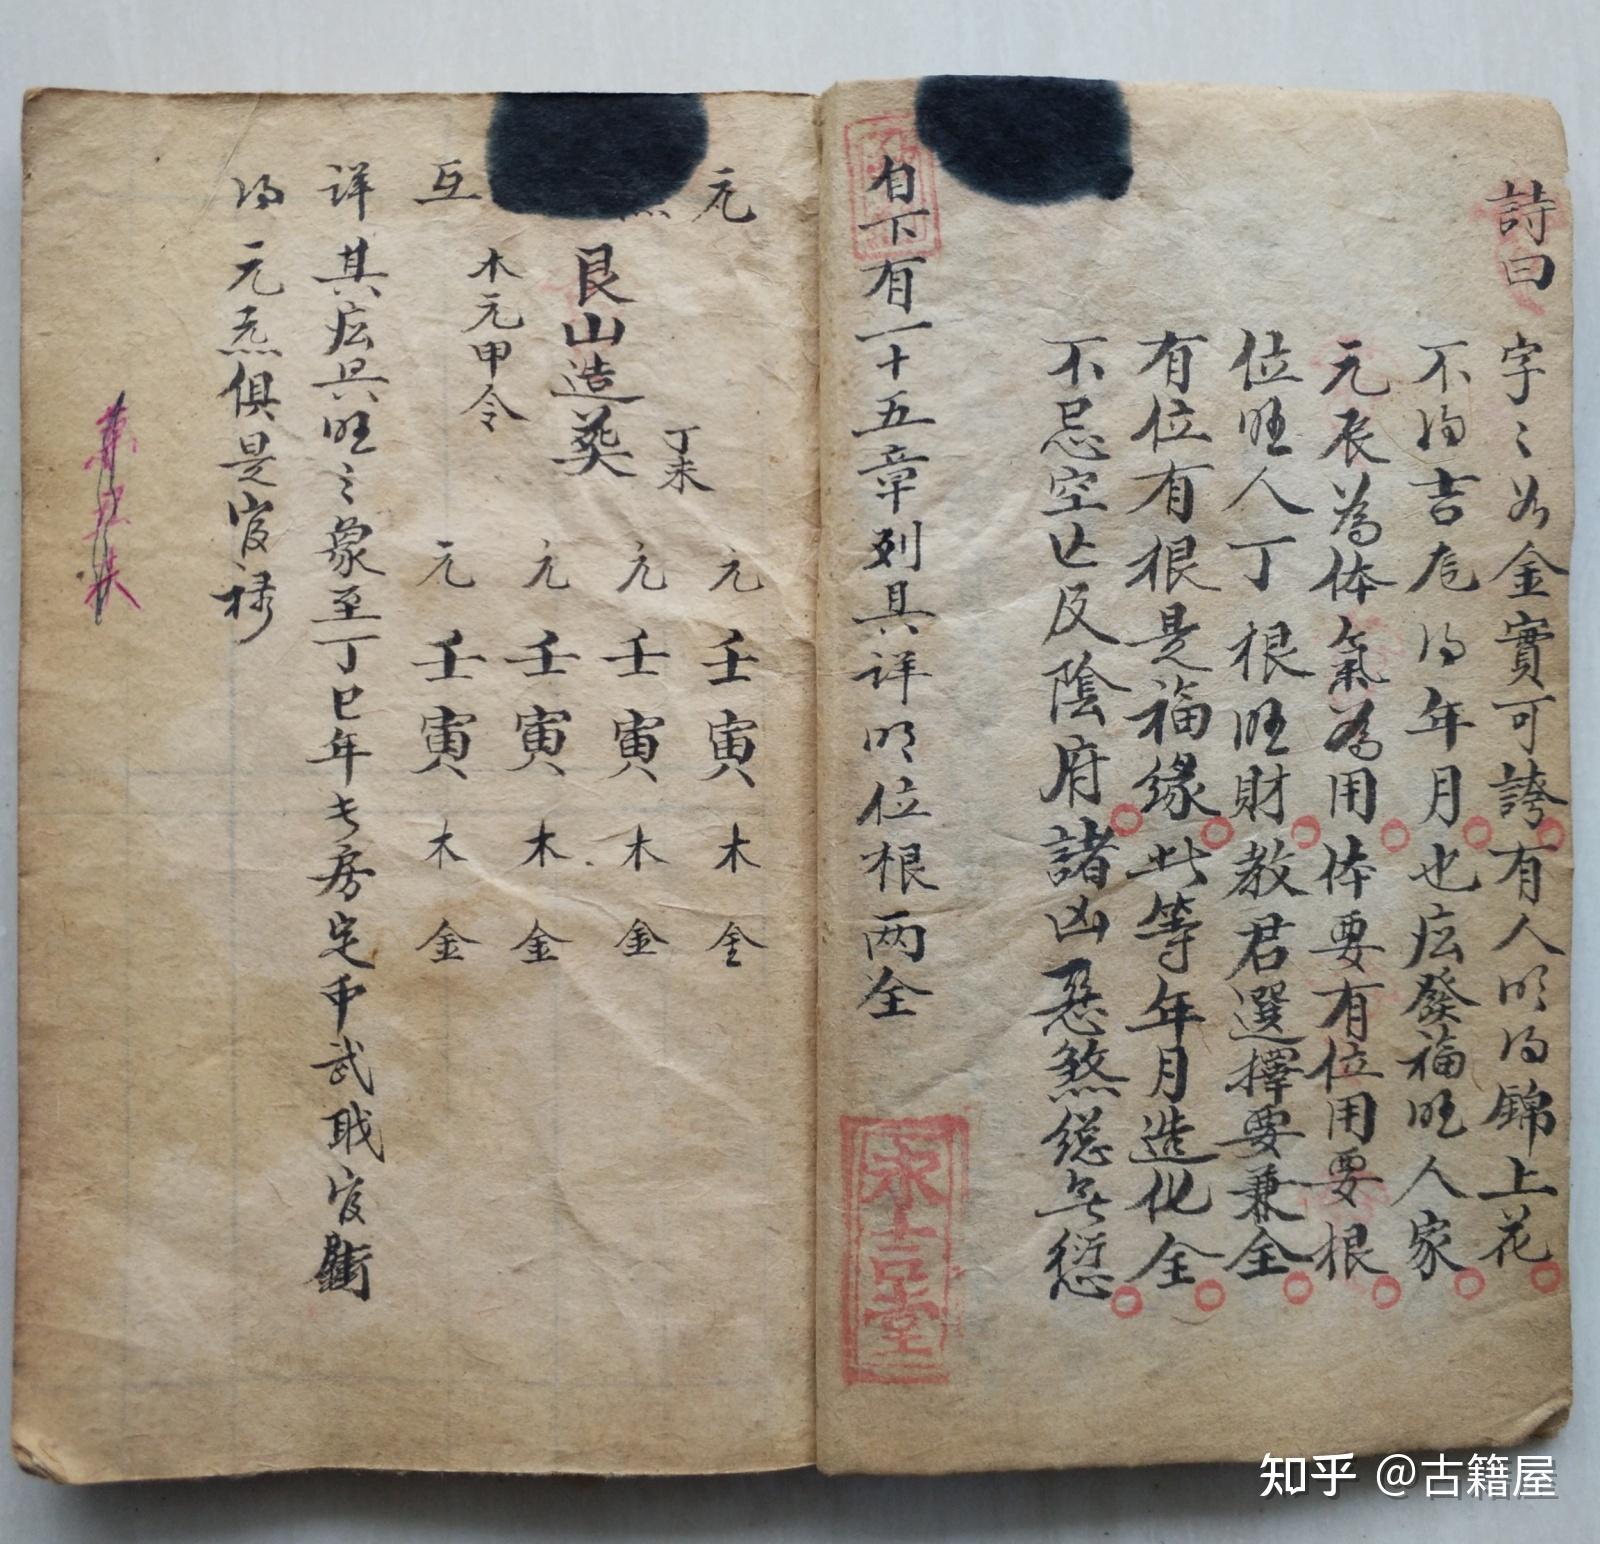 詩曰 字〻如金實可誇 有人明得錦上花
不得吉 得年月也 發福旺人家
元辰為体氣為用 体要有位用要根
位旺人丁根旺財 教君選擇要兼全
有位有根是福緣 此等年月造化全
不忌空亡反陰府 諸凶惡煞總無愆
自下有一十五章列具詳明位根两全
永吉堂
元
艮山造葬 丁未
互 木元甲令
元 壬寅 木 金
元 壬寅 木 金
元 壬寅 木 金
元 壬寅 木 金
詳其 旺〻象至丁巳年 房 武職官銜
得元 俱是官祿
知乎 @古籍屋